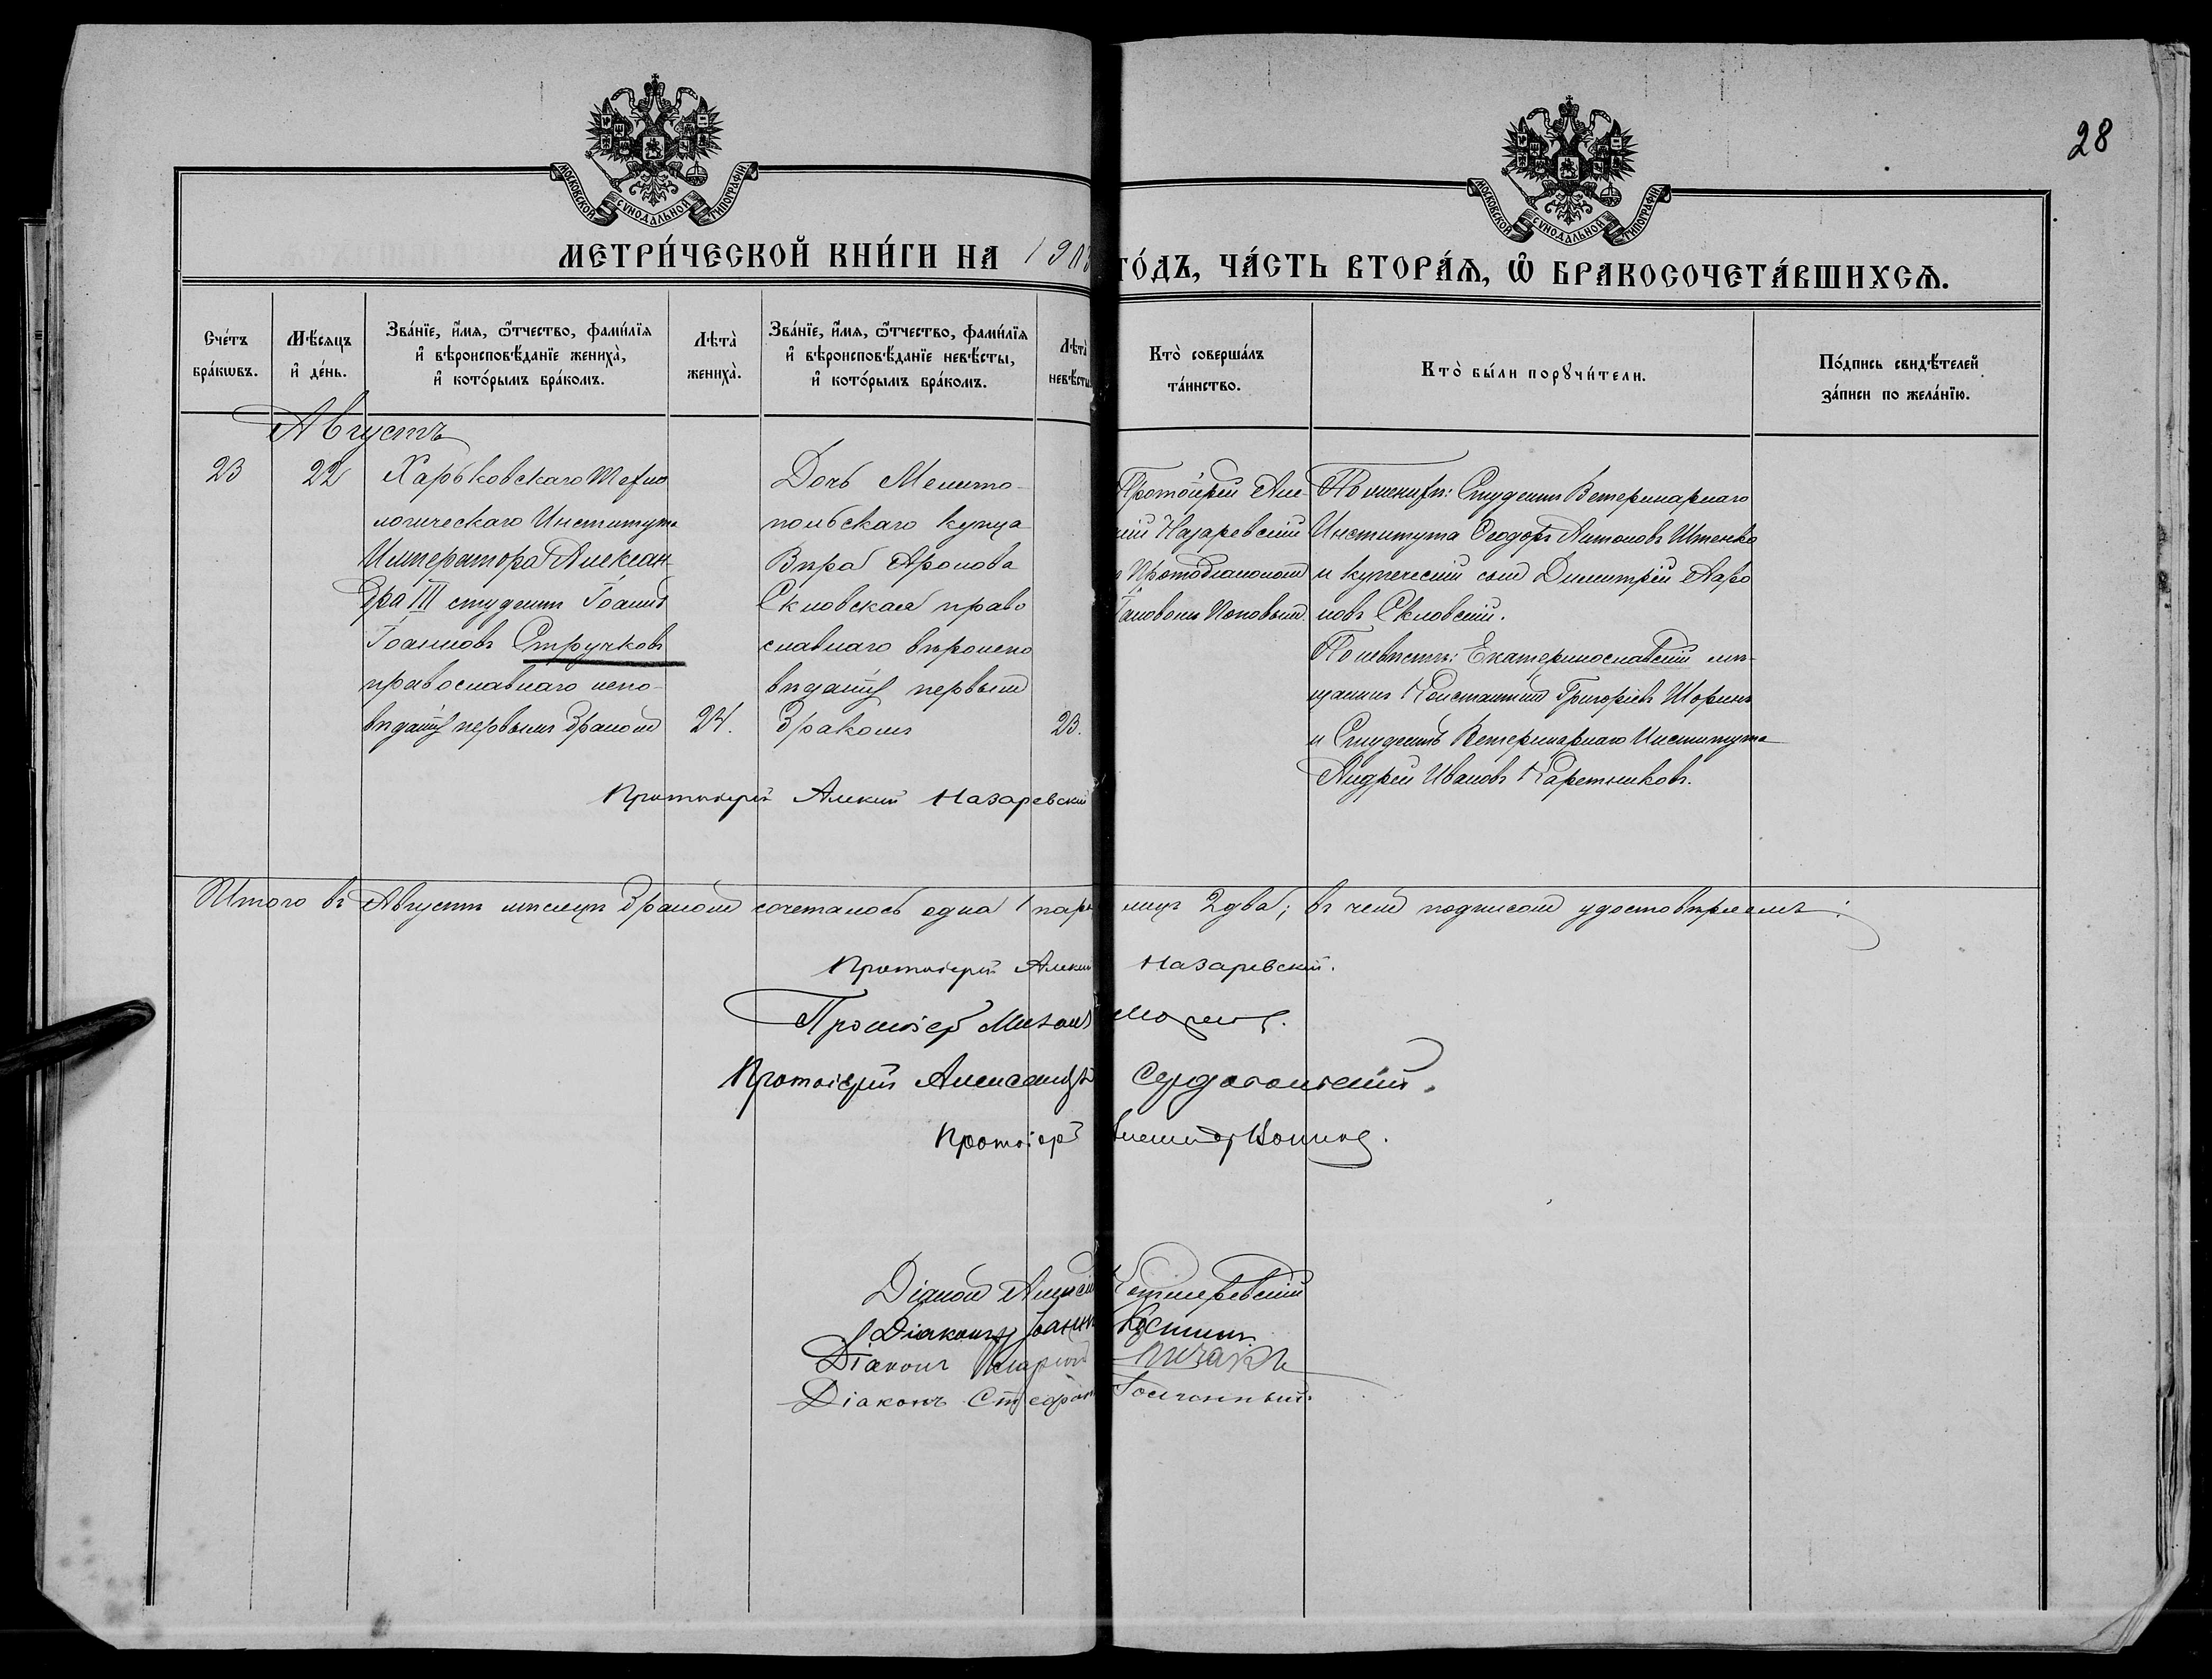 28
МОСКОВСКОЙ СѴНОДАЛЬНОЙ ТИПОГРАФІИ
МОСКОВСКОЙ СѴНОДАЛЬНОЙ ТИПОГРАФІИ
МЕТРИ́ЧЕСКОЙ КНИ́ГИ НА 1903 ГО́ДЪ, ЧА́СТЬ ВТОРА́Ѧ, Ѽ БРАКОСОЧЕТА́ВШИХСѦ.
Сче́тъ
бра́кѡвъ.
Мѣ́сяцъ
и҆ де́нь.
Зва́нїе, и҆́мя, ѻ҆́тчество, фами́лїя
и҆ вѣроисповѣ́данїе жениха̀,
и҆ кото́рымъ бра́комъ.
Лѣта̀
жениха̀.
Зва́нїе, и҆́мя, ѻ҆́тчество, фами́лїя
и҆ вѣроисповѣ́данїе невѣ́сты,
и҆ кото́рымъ бра́комъ.
Лѣта̀
невѣ́сты
Кто̀ соверша́лъ
та́инство.
Кто̀ бы́ли порꙋчи́тели.
По́дпись свидѣ́телей
за́писи по жела́нїю.
Августъ
23
22
Харьковскаго Техно
логическаго Института
Императора Алексан-
дра III студентъ Іоаннъ
Іоанновъ Стручковъ
православнаго испо-
вѣданія первымъ бракомъ
24.
Дочь Мелито-
польскаго купца
Вѣра Аронова
Скловская право
славнаго вѣроиспо
вѣданія первымъ
бракомъ
23.
Протоіерей Але-
ксій Назаревскій
Протодіакономъ
Поповымъ.
По женихѣ: Студентъ Ветеринарнаго
Института Ѳеодоръ Антоновъ Штенко
и купеческій сынъ Димитрій Ааро
новъ Скловскій.
По невѣстѣ: Екатеринославскій мѣ-
щанинъ Константинъ Григорьевъ Шоринъ
и Студентъ Ветеринарнаго Института
Андрей Ивановъ Каретниковъ.
Протоіерей Алексій Назаревскій
Итого въ Августѣ мѣсяцѣ бракомъ сочеталось одна 1 пара лицъ 2 два; въ чемъ подписомъ удостовѣряемъ:
Протоіерей Алексій Назаревскій.
Протоіер Михаилъ
Протоіерей Александръ Сердобольскій.
Протоіер Александръ
Діаконъ Алексій
Діаконъ Іоаннъ Костинъ
Діаконъ Иларіонъ
Діаконъ Стефанъ